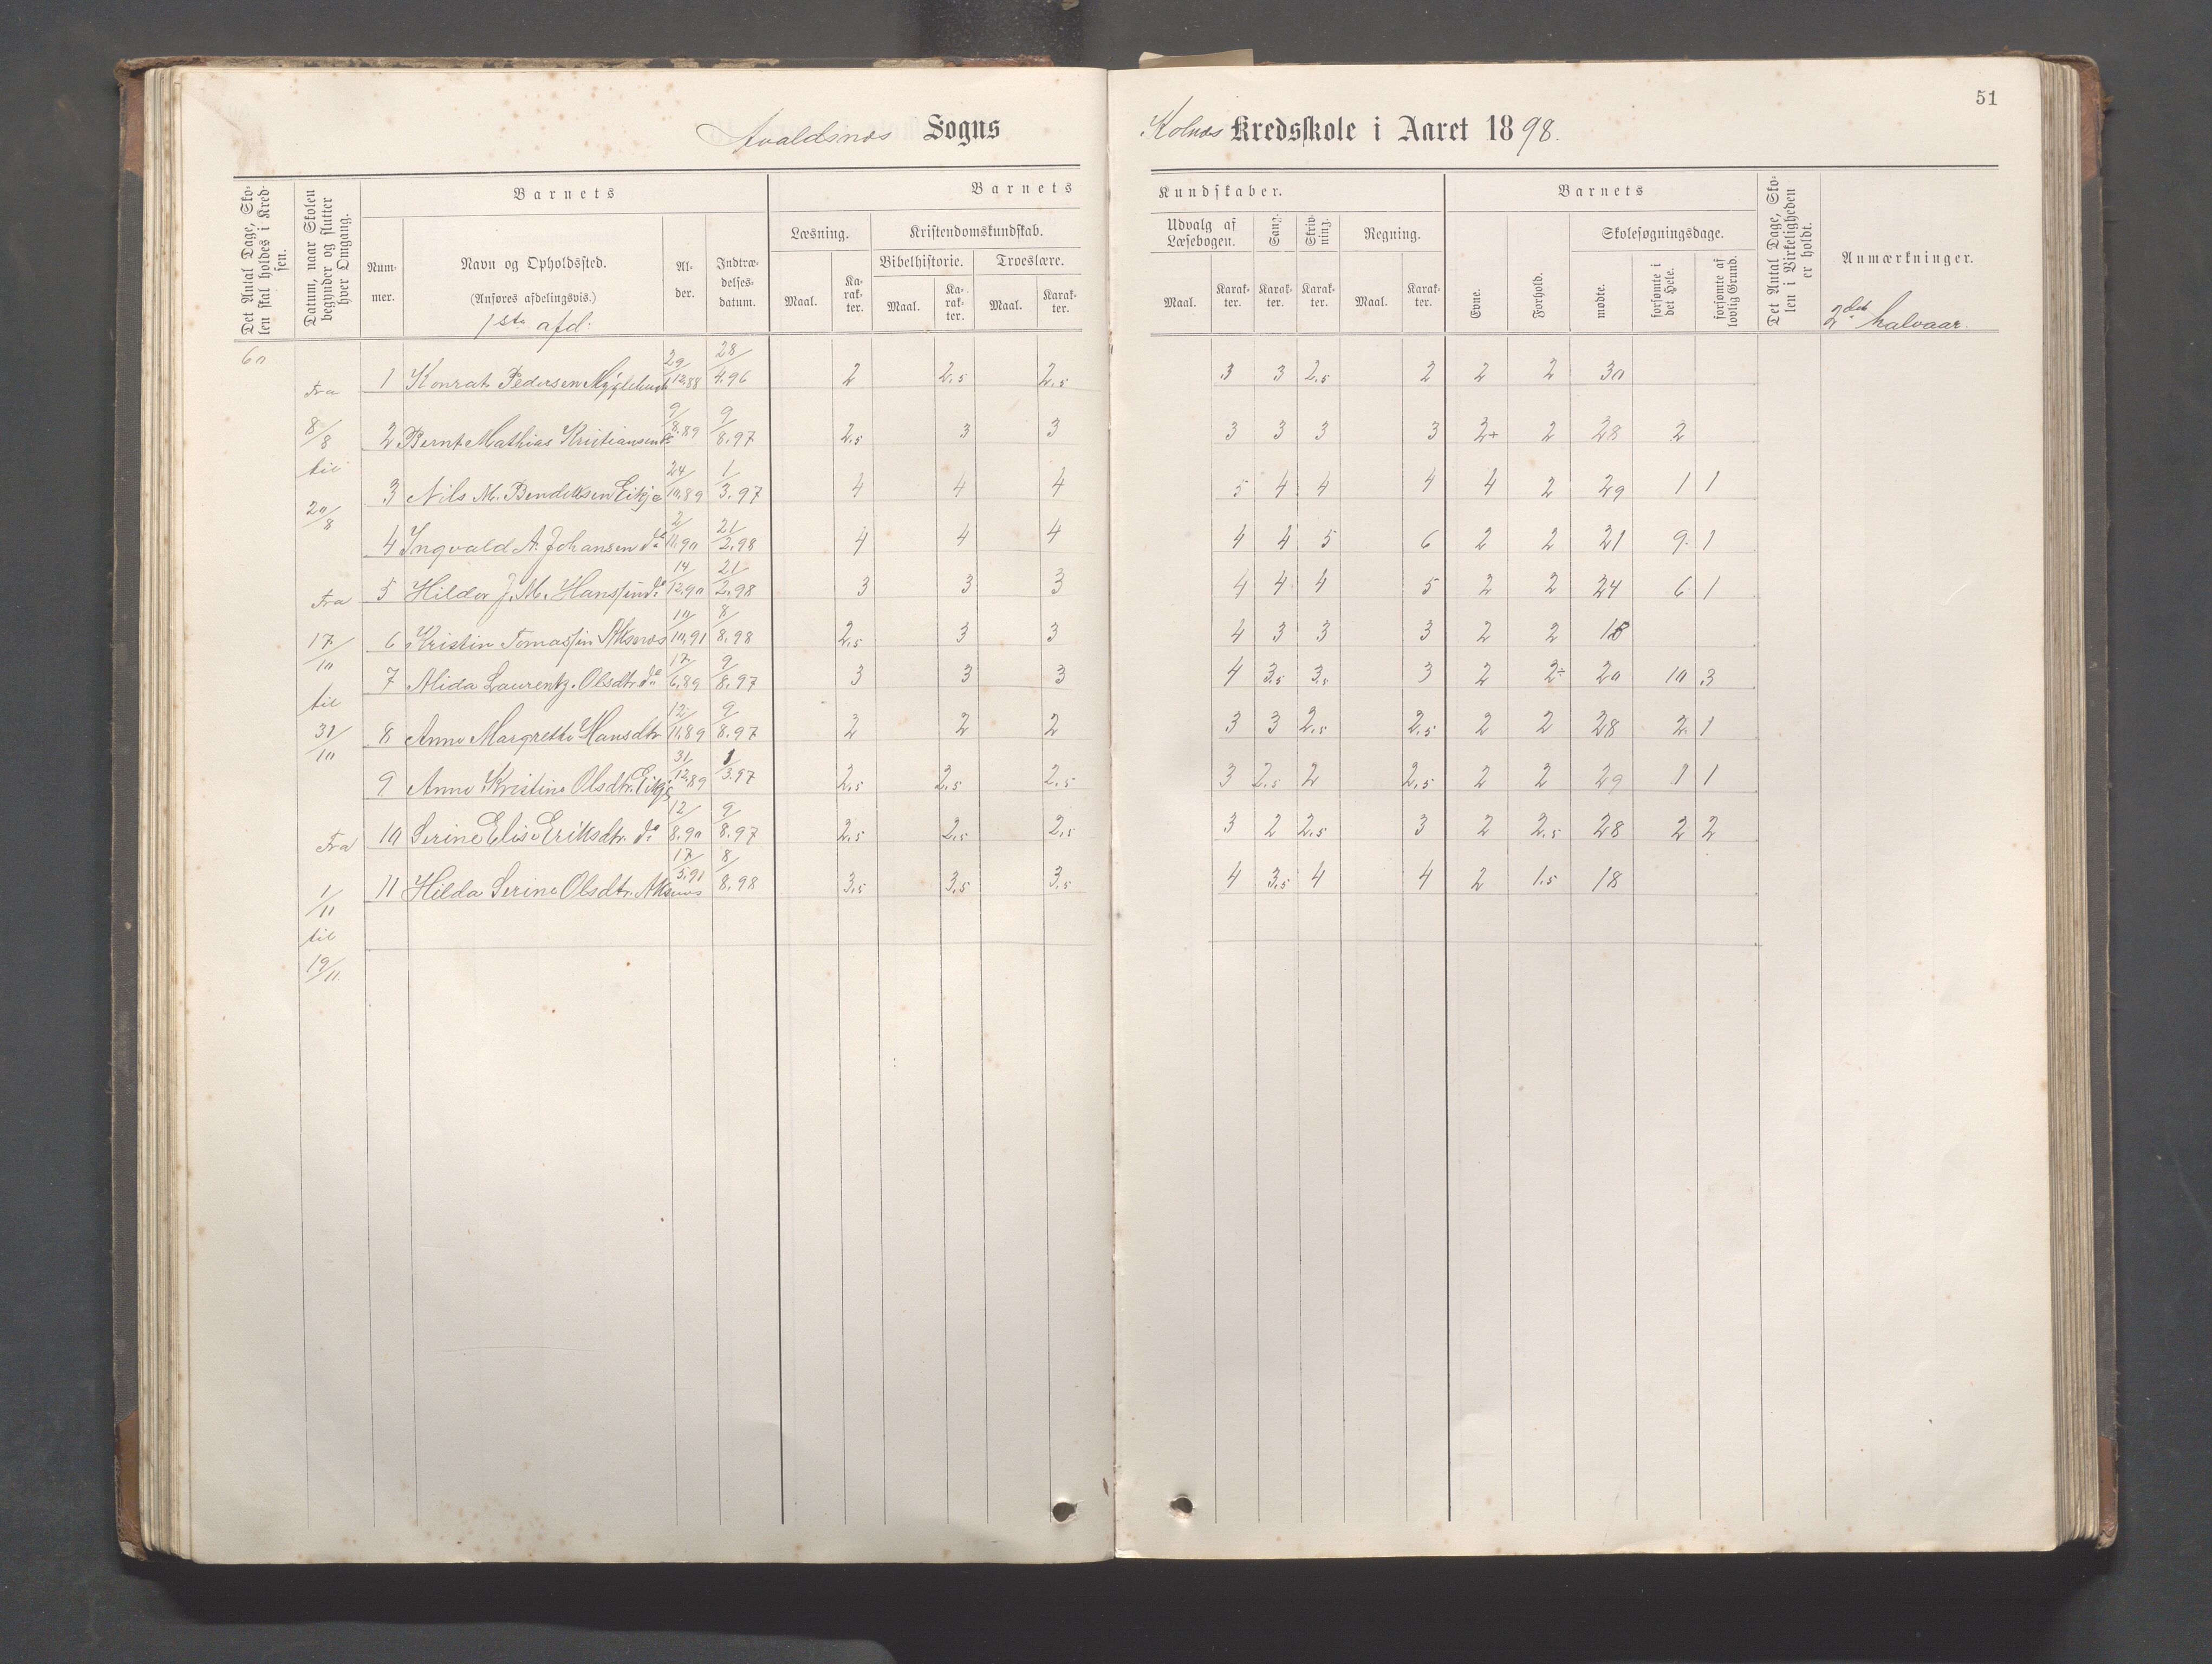 51
Avaldsnes Sogns
Kolnæs Kredsskole i Aaret 1898.
Det Antal Dage, Skolen skal holdes i Kredsen.
Datum, naar Skolen begynder og slutter hver Omgang.
Barnets
Nummer.
Navn og Opholdssted.
(Anføres afdelingsvis.)
1ste afd:
Alder.
Indtrædelsesdatum.
Barnets
Læsning.
Maal.
Karakter.
Kristendomskundskab.
Bibelhistorie.
Maal.
Karakter.
Troeslære.
Maal.
Karakter.
Kundskaber.
Udvalg af Læsebogen.
Maal.
Karakter.
Sang.
Karakter.
Skrivning.
Karakter.
Regning.
Maal.
Karakter.
Barnets
Evne.
Forhold.
Skolesøgningsdage.
mødte.
forsømte i det Hele.
forsømte af lovlig Grund.
Det Antal Dage, Skolen i Virkeligheden er holdt.
Anmærkninger.
2det halvaar.
60
Fra 8/8 til 20/8
Fra 17/10 til 31/10
Fra 1/11 til 19/11.
1 Konrat Pedersen 29/12.88 28/4.96 2 2,5 2,5 3 3 2,5 2 2 2 30
2 Bernt Mathias Kristiansen do 9/8.89 9/8.97 2,5 3 3 3 3 3 3 2+ 2 28 2
3 Nils M. Bendiksen Eikje 24/10.89 1/3.97 4 4 4 5 4 4 4 4 2 29 1 1
4 Ingvald A. Johansen do 2/11.90 21/2.98 4 4 4 4 4 5 6 2 2 21 9 1
5 Hilder J. M. Hanssen do 14/12.90 21/2.98 3 3 3 4 4 4 5 2 2 24 6 1
6 Kristin Tomassen Aksnæs 10/10.91 8/8.98 2,5 3 3 4 3 3 3 2 2 18
7 Alida Laurentz. Olsdtr. do 17/6.89 9/8.97 3 3 3 4 3,5 3,5 3 2 2÷ 20 10 3
8 Anne Margrethe Hansdtr 12/11.89 9/8.97 2 2 2 3 3 2,5 2,5 2 2 28 2 1
9 Anne Kristine Olsdtr. Eikje 31/12.89 1/3.97 2,5 2,5 2,5 3 2,5 2 2,5 2 2 29 1 1
10 Serine Elise Eriksdtr. do 12/8.90 9/8.97 2,5 2,5 2,5 3 2 2,5 3 2 2,5 28 2 2
11 Hilda Serine Olsdtr. Aksnæs 17/5.91 8/8.98 3,5 3,5 3,5 4 3,5 4 4 2 1,5 18